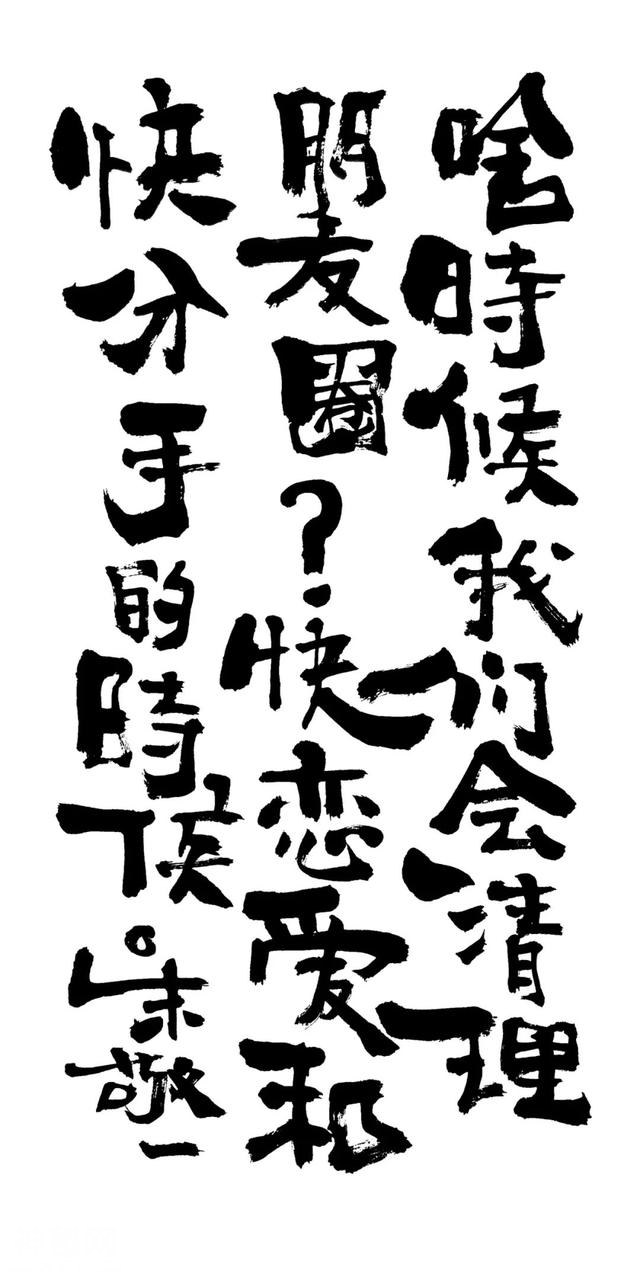 啥時候我们会清理
朋友圈？快恋爱和
快分手的時候。朱敬一